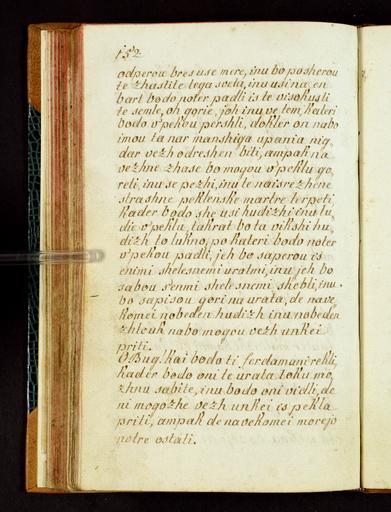 152
odperou bres use mere, inu bo posherou
te zhastite tega sveta, inu usi na, en
bart bodo noter padli is te visokusti
te semle, oh gorje, joh inu ve tem, kateri
bodo v'pekou pershli, dokler on nabo
imou ta nar manshiga upania nig,
dar vezh odreshen biti, ampak na
vezhne zhase bo mogou v'peklu go,
reti, inu se pezhi, inu te naisrezhene
strashne peklenske martre terpeti,
Kader bodo she usi hudizhi inu lu,
die v'peklu, takrat bo ta vikshi hu,
dizh to lukno, po kateri bodo noter
v'pekou padli, jeh bo saperou is
enimi shelesnemi uratmi, inu jeh bo
sabou s'enmi shelesnemi shebli, inu
bo sapisou gori na urata, de nave,
komei nobeden hudizh inu nobeden
zhlouk nabo mogou vezh unkei
priti.
O Bug! Kai bodo ti ferdamani rekli,
kader bodo oni te urata toku mo,
zhnu sabite, inu bodo oni vidli, de
ni mogozhe vezh unkei is pekla
priti, ampak de navekomei morejo
notre ostati.